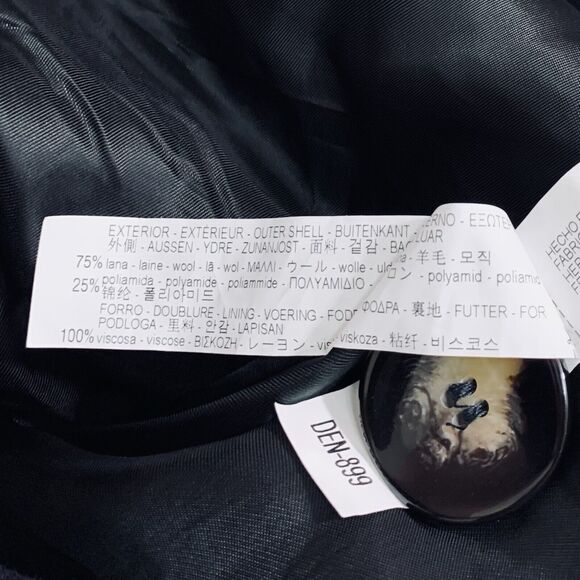 EXTERIOR - EXTÉRIEUR - OUTER SHELL - BUITENKANT - ΕΞΩΤΕ
外側 - AUSSEN - YDRE - ZUNANJOST - 面料 - 겉감 -
75% lana - laine - wool - lã - wol - ΜΑΛΛΙ - ウール - wolle - 羊毛 - 모직
25% poliamida - polyamide - poliammide - ΠΟΛΥΑΜΙΔΙΟ - - polyamid -
锦纶 - 폴리아미드
FORRO - DOUBLURE - LINING - VOERING - ΦΟΔΡΑ - 裏地 - FUTTER - FOR
PODLOGA - 里料 - 안감 - LAPISAN
100% viscosa - viscose - ΒΙΣΚΟΖΗ - レーヨン - viskoza - 粘纤 - 비스코스
HECHO
DEN-899